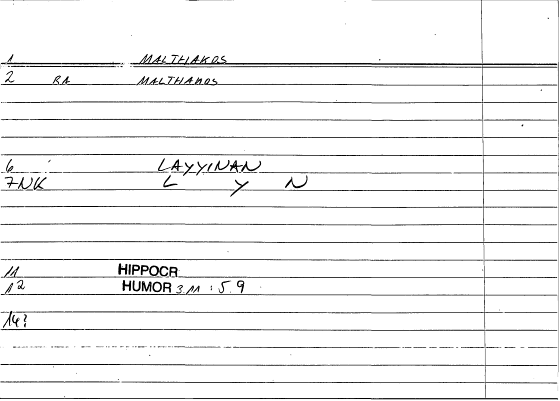 1 MALTHAKOS
2 RA MALTHAKOS
6 LAYYINAN
7NK L Y N
11 HIPPOCR
12 HUMOR 3 11 : 5.9
14?